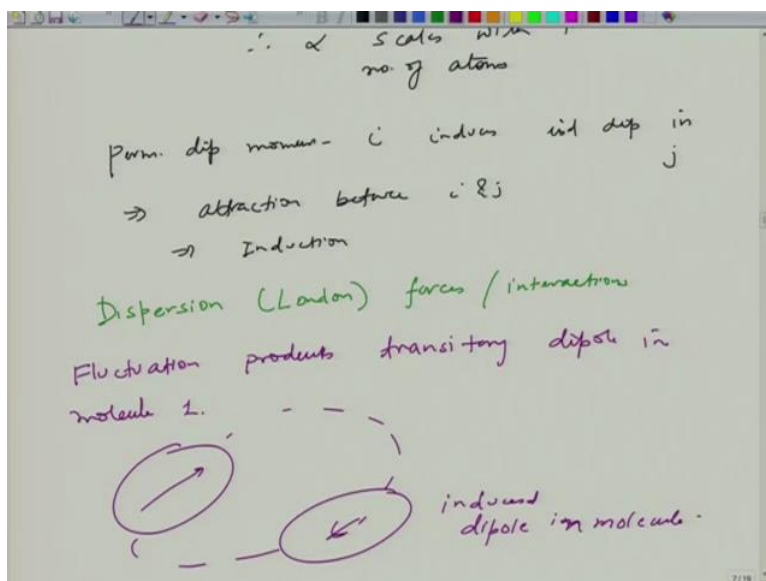 ∴ α scales with
no. of atoms
Perm. dip momen- i induces ind dip in
j
⇒ attraction betwee i & j
⇒ Induction
Dispersion (London) forces / interactions
Fluctuation products transitory dipole in
molecule 1.
induced
dipole in molecule.
7/18